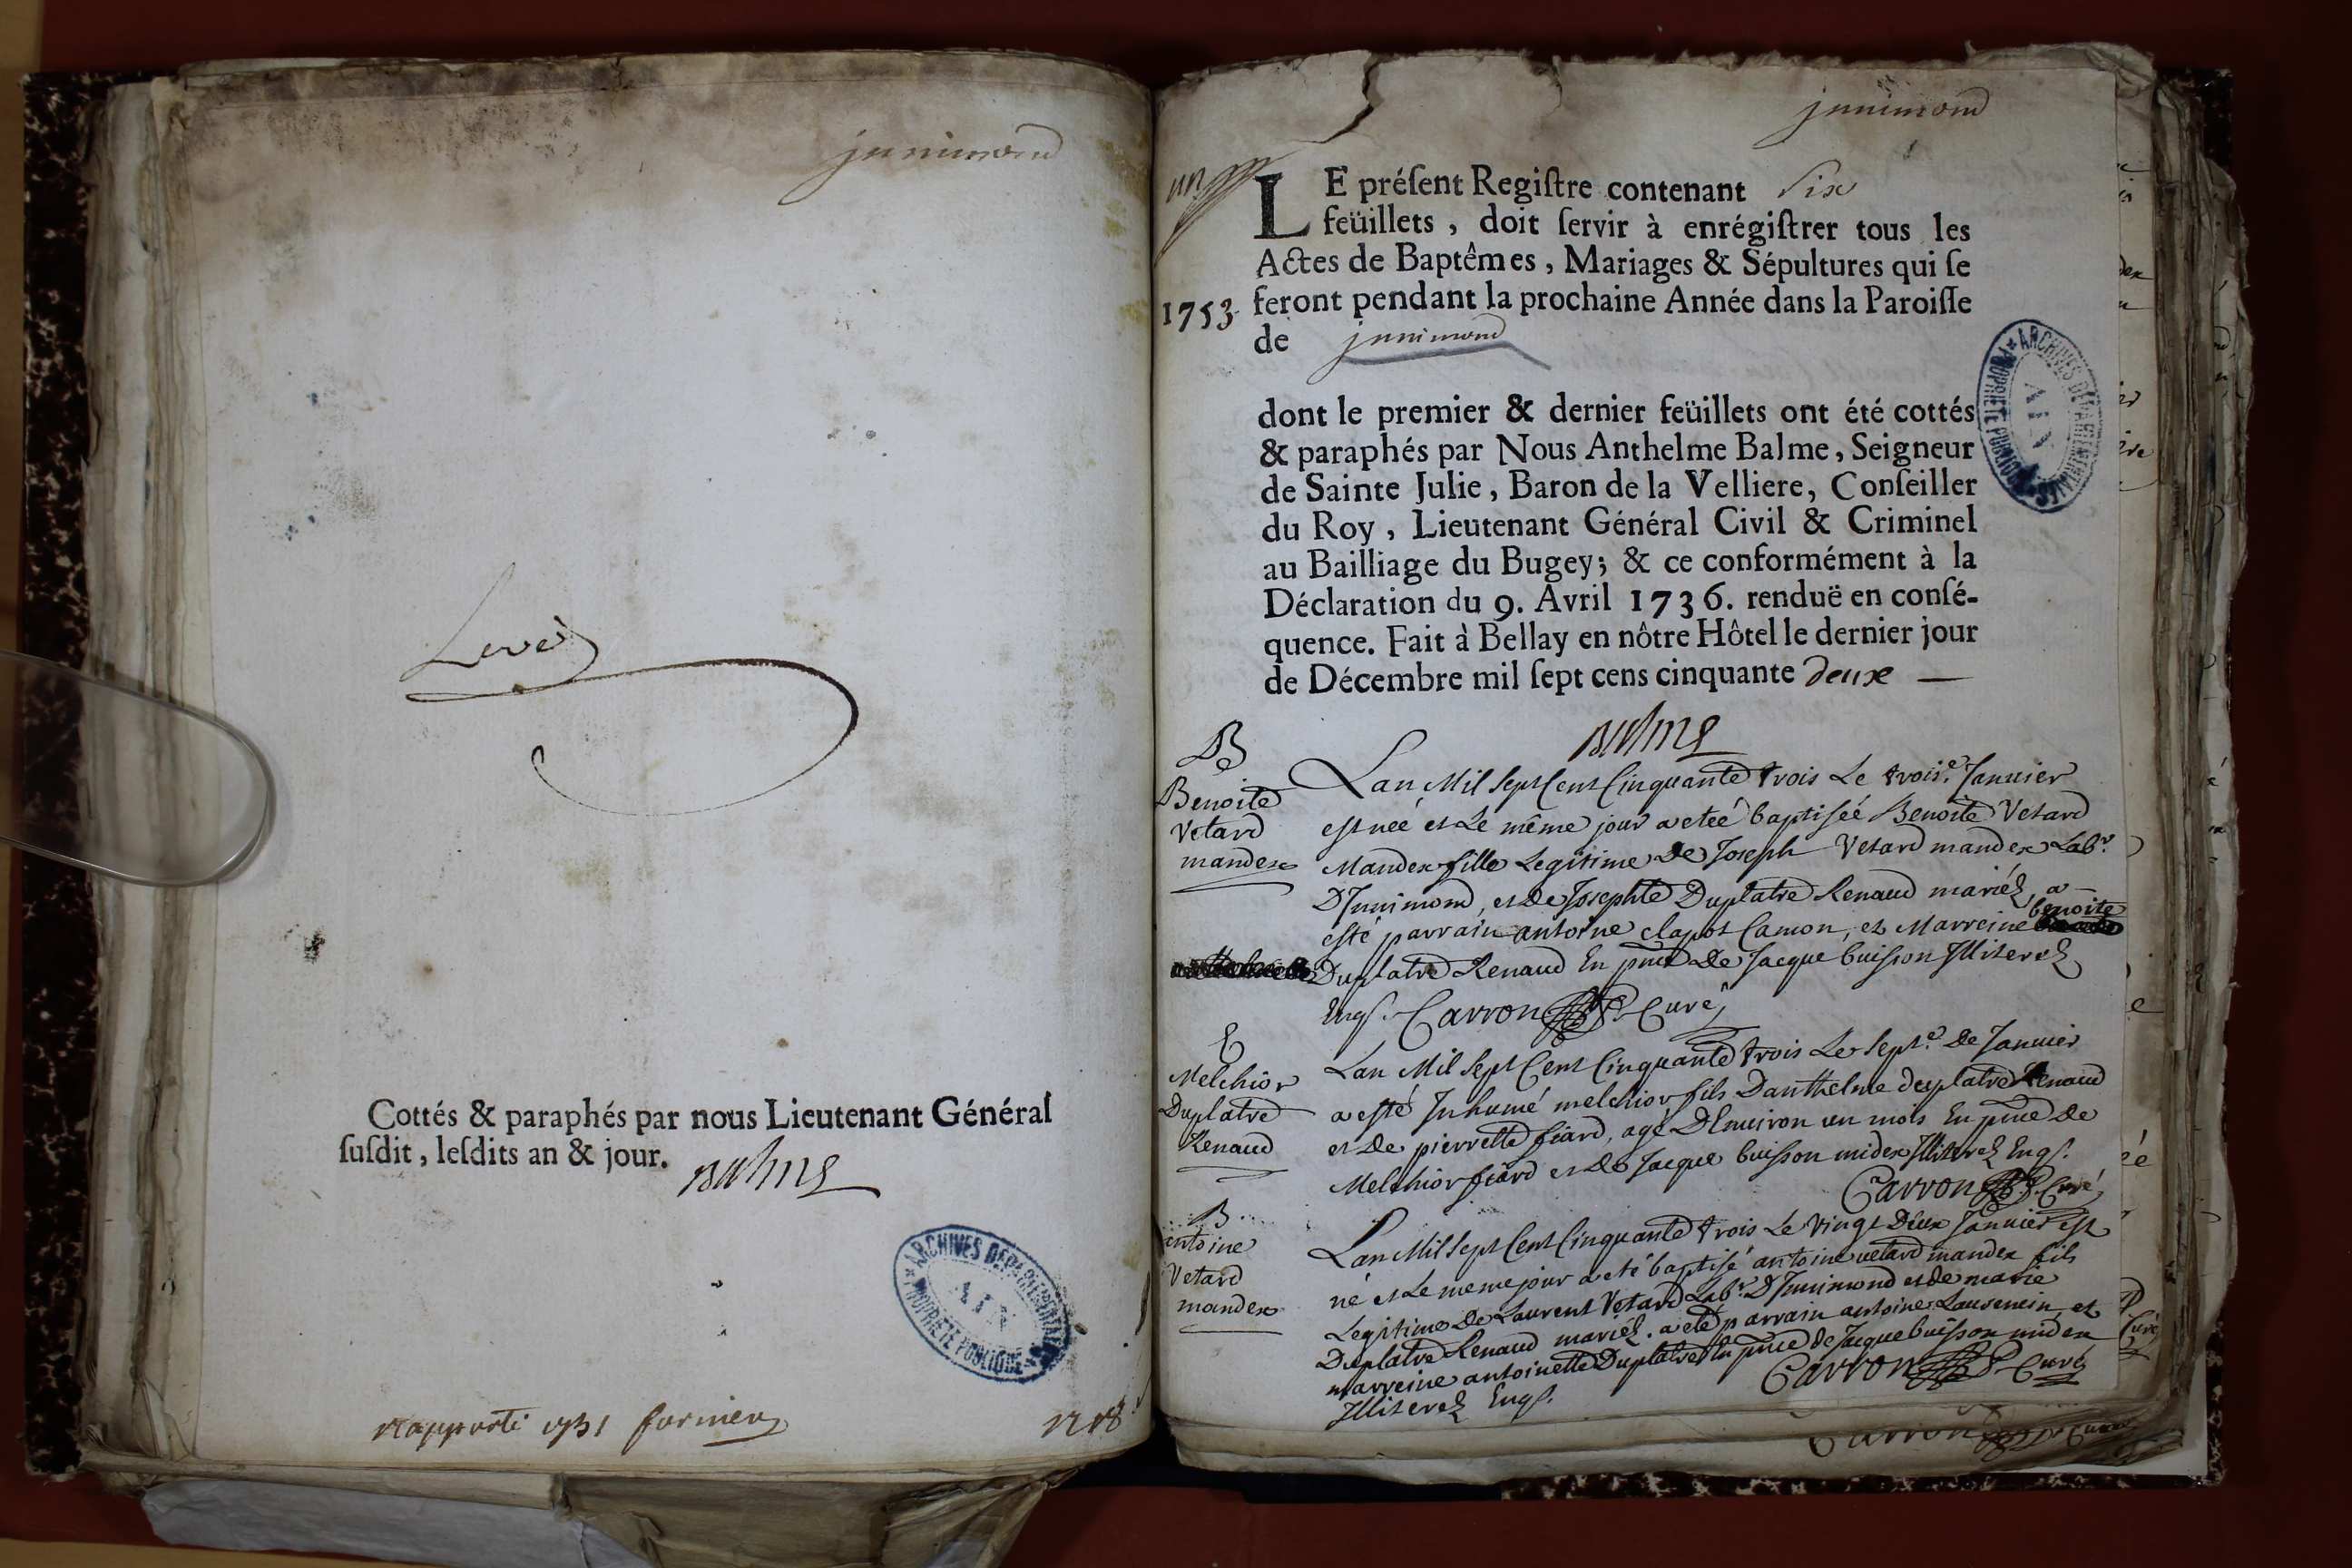 junimond
Levé
Cottés & paraphés par nous Lieutenant Général
ſuſdit, leſdits an & jour.
Balme
ARCHIVES DEPARTEMENTALES
AIN
PROPRIETE PUBLIQUE
rapporté
junimond
un
LE préſent Regiſtre contenant Six
feüillets, doit ſervir à enrégiſtrer tous les
Actes de Baptêmes, Mariages & Sépultures qui ſe
1753 feront pendant la prochaine Année dans la Paroiſſe
de junimond
ARCHIVES DEPARTEMENTALES
AIN
PROPRIETE PUBLIQUE
dont le premier & dernier feüillets ont été cottés
& paraphés par Nous Anthelme Balme, Seigneur
de Sainte Julie, Baron de la Velliere, Conſeiller
du Roy, Lieutenant Général Civil & Criminel
au Bailliage du Bugey; & ce conformément à la
Déclaration du 9. Avril 1736. renduë en conſé-
quence. Fait à Bellay en nôtre Hôtel le dernier jour
de Décembre mil ſept cens cinquante deux
Balme
B
Benoite
Vetard
mandex
Lan Mil Sept Cent Cinquante trois Le trois.e Janvier
est née et Le même jour a eteé baptisée Benoite Vetard
Mandex fille Legitime De Joseph Vetard mandex Lab.r
D'Junimond, et De Josephte Duplatre Renaud mariéz, a
esté parrain antoine clapot Camon, et Marreine benoite
Duplatre Renaud En pnce De Jacque buisson Illiterez
Enqs. Carron Curé
E
Melchior
Duplatre
Renaud
Lan Mil Sept Cent Cinquante trois Le Sept.e De Janvier
a esté Inhumé melchior fils Danthelme duplatre Renaud
et De pierrette fiard, agé D'Environ un mois En pnce de
Melchior fiard et De Jacque buisson midex Illiterez Enqs.
Carron Curé
B
antoine
Vetard
mandex
Lan Mil Sept Cent Cinquante trois Le vingt Deux Janvier est
né et Le meme jour a eté baptisé antoine vetard mandex fils
Legitime De Laurent Vetard Lab.r D'Junimond et de marie
Duplatre Renaud mariéz. a eté parrain antoine et
marreine antoinette Duplatre En pnce de Jacque buisson midex
Illiterez Enqs. Carron Curé
Carron Curé